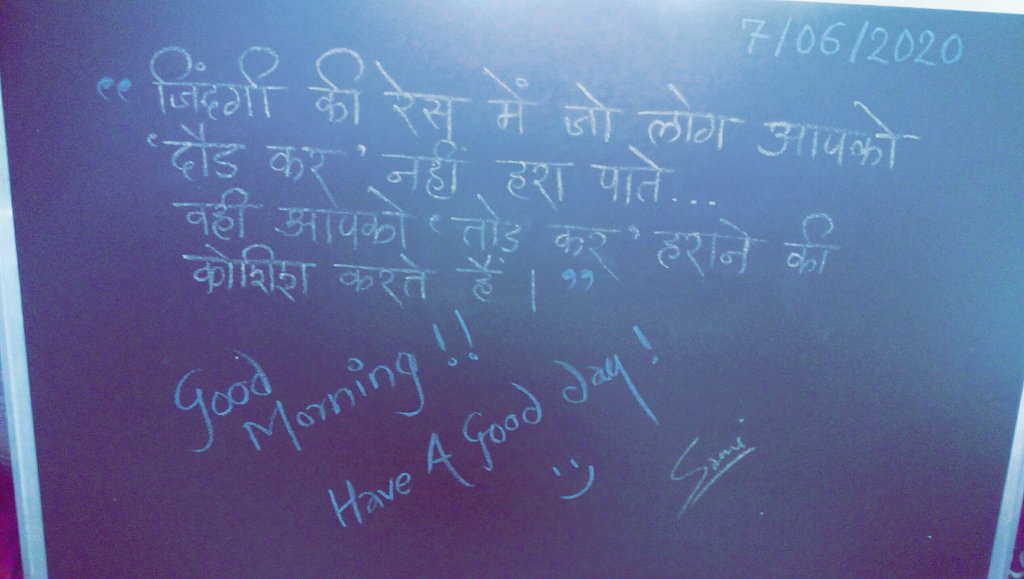 7/06/2020
“ जिंदगी की रेस में जो लोग आपको
‘दौड कर’ नहीं हरा पाते...
वही आपको ‘तोड़ कर’ हराने की
कोशिश करते हैं । ”
Good
Morning!!
Have A Good Day!
:)
Sami